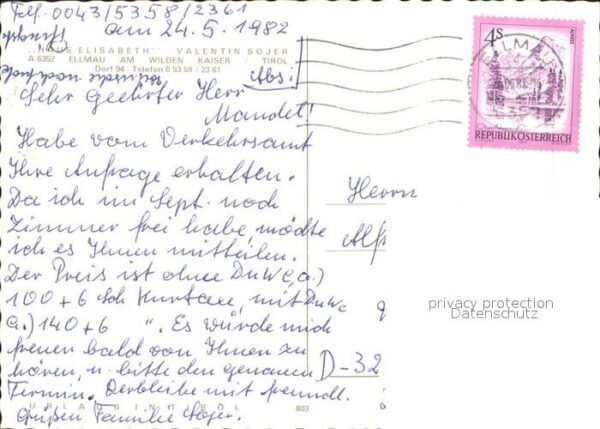 Telf. 0043/5358/2361
am 24.5.1982
"HAUS ELISABETH" - VALENTIN SOJER
A 6352 ELLMAU AM WILDEN KAISER / TIROL
Dorf 94 - Telefon 0 53 58 / 23 61
Abs:
Sehr Geehrter Herr
Mandet!
Habe vom Verkehrsamt
Ihre Anfrage erhalten.
Da ich im Sept. noch
Zimmer frei habe möchte
ich es Ihnen mitteilen.
Der Preis ist ohne DuWc, a.)
100 + 6 Sch Kurtaxe, mit DuWc
a.) 140 + 6 ". Es würde mich
freuen bald von Ihnen zu
hören, u. bitte den genauen
Termin. Verbleibe mit freundl.
Grüßen Familie Sojer.
URLAUB IN TIROL
803
4S
REPUBLIK ÖSTERREICH
ELLMAU
Herrn
Alf
D-32
privacy protection
Datenschutz